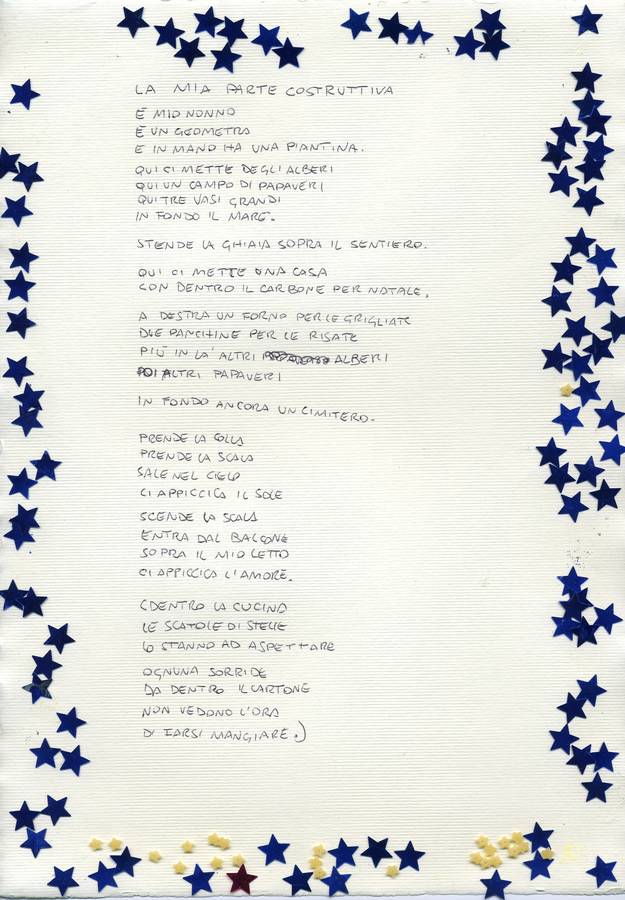 LA MIA PARTE COSTRUTTIVA
È MIO NONNO
È UN GEOMETRA
E IN MANO HA UNA PIANTINA.
QUI CI METTE DEGLI ALBERI
QUI UN CAMPO DI PAPAVERI
QUI TRE VASI GRANDI
IN FONDO IL MARE.
STENDE LA GHIAIA SOPRA IL SENTIERO.
QUI CI METTE UNA CASA
CON DENTRO IL CARBONE PER NATALE,
A DESTRA UN FORNO PER LE GRIGLIATE
DUE PANCHINE PER LE RISATE
PIÙ IN LA' ALTRI ALBERI
POI ALTRI PAPAVERI
IN FONDO ANCORA UN CIMITERO.
PRENDE LA COLLA
PRENDE LA SCALA
SALE NEL CIELO
CI APPICCICA IL SOLE
SCENDE LA SCALA
ENTRA DAL BALCONE
SOPRA IL MIO LETTO
CI APPICCICA L'AMORE.
(DENTRO LA CUCINA
LE SCATOLE DI STELLE
LO STANNO AD ASPETTARE
OGNUNA SORRIDE
DA DENTRO IL CARTONE
NON VEDONO L'ORA
DI FARSI MANGIARE.)